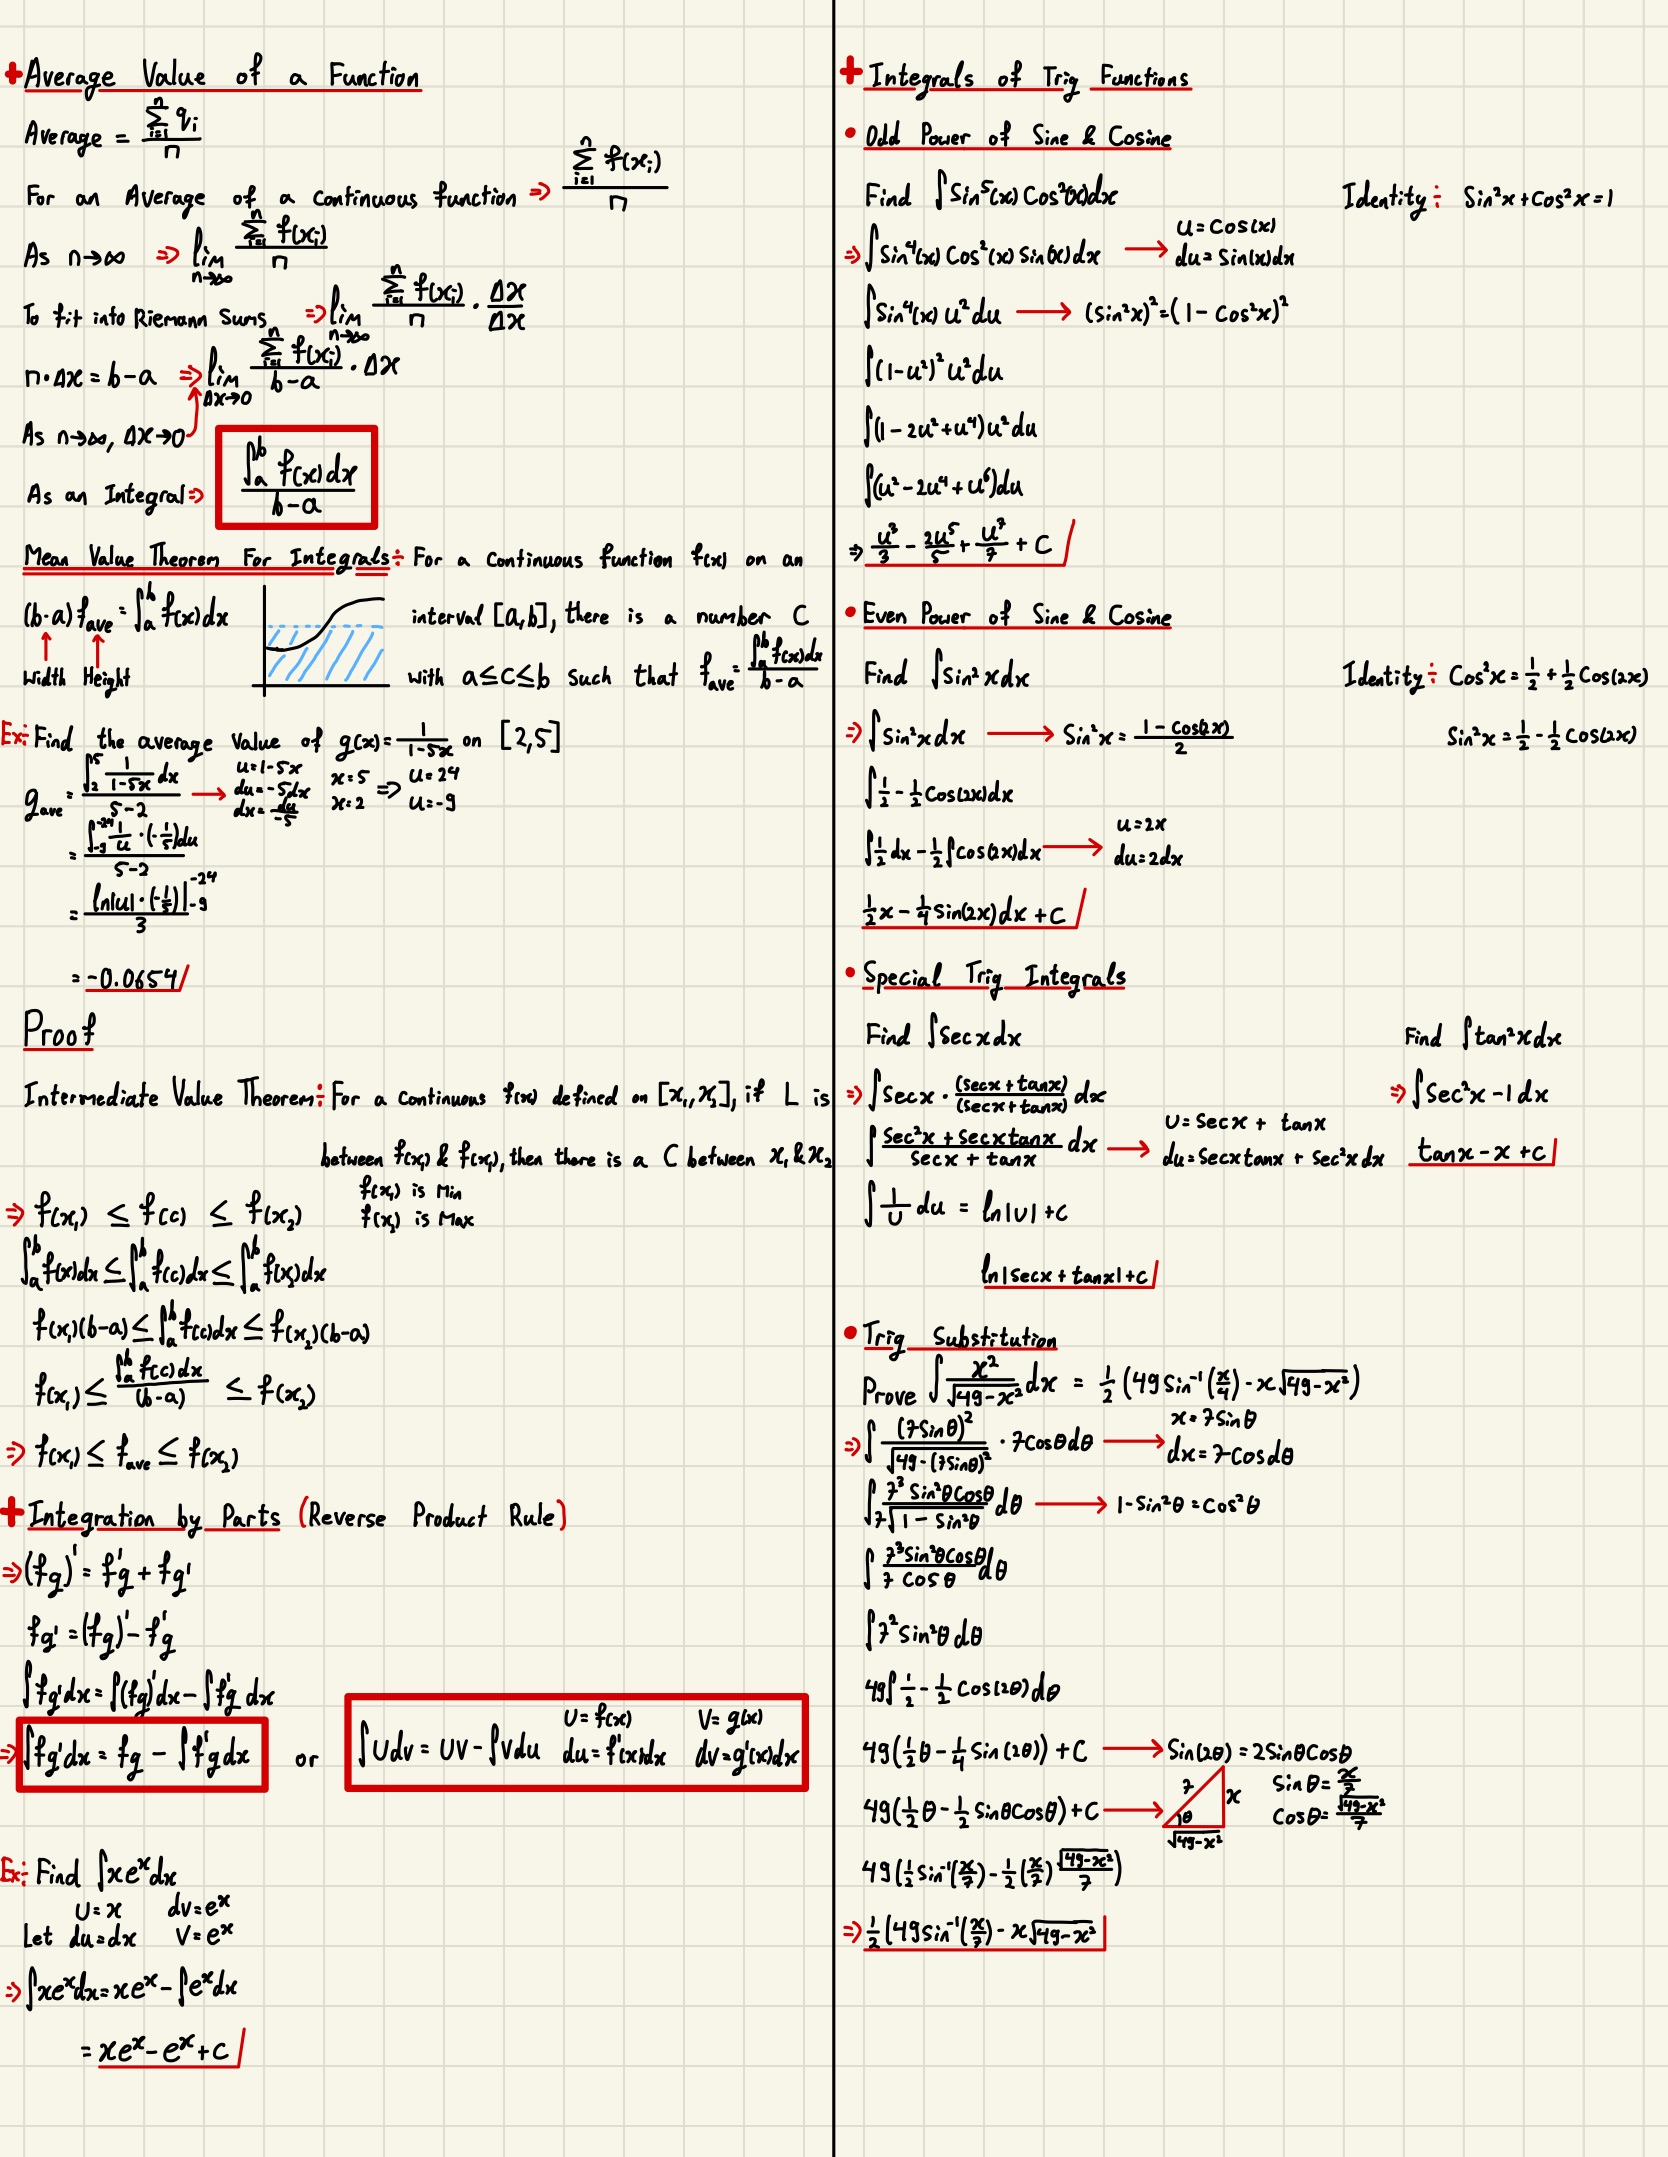 + Average Value of a Function
Average = \frac{\sum_{i=1}^{n} q_i}{n}
For an Average of a continuous function ⇒ \frac{\sum_{i=1}^{n} f(x_i)}{n}
As n→∞ ⇒ lim_{n→∞} \frac{\sum_{i=1}^{n} f(x_i)}{n}
To fit into Riemann Sums ⇒ lim_{n→∞} \frac{\sum_{i=1}^{n} f(x_i)}{n} · \frac{Δx}{Δx}
n·Δx = b-a ⇒ lim_{Δx→0} \frac{\sum_{i=1}^{n} f(x_i)}{b-a} · Δx
As n→∞, Δx→0
As an Integral ⇒ \frac{∫_a^b f(x)dx}{b-a}
Mean Value Theorem For Integrals÷ For a continuous function f(x) on an
interval [a,b], there is a number C
with a≤c≤b such that f_ave = \frac{∫_a^b f(x)dx}{b-a}
(b-a) f_ave = ∫_a^b f(x)dx
Width Height
Ex÷ Find the average value of g(x) = \frac{1}{1-5x} on [2,5]
g_ave = \frac{∫_2^5 \frac{1}{1-5x} dx}{5-2} → u=1-5x x=5 ⇒ u=24
du=-5dx x=2 u=-9
dx=\frac{du}{-5}
= \frac{∫_{-9}^{-24} \frac{1}{u}·(-\frac{1}{5})du}{5-2}
= \frac{ln|u|·(-\frac{1}{5})|_{-9}^{-24}}{3}
= -0.0654
Proof
Intermediate Value Theorem÷ For a continuous f(x) defined on [x_1,x_2], if L is
between f(x_1) & f(x_2), then there is a C between x_1 & x_2
f(x_1) is Min
f(x_2) is Max
⇒ f(x_1) ≤ f(c) ≤ f(x_2)
∫_a^b f(x_1)dx ≤ ∫_a^b f(c)dx ≤ ∫_a^b f(x_2)dx
f(x_1)(b-a) ≤ ∫_a^b f(c)dx ≤ f(x_2)(b-a)
f(x_1) ≤ \frac{∫_a^b f(c)dx}{(b-a)} ≤ f(x_2)
⇒ f(x_1) ≤ f_ave ≤ f(x_2)
+ Integration by Parts (Reverse Product Rule)
⇒ (fg)' = f'g + fg'
fg' = (fg)' - f'g
∫fg'dx = ∫(fg)'dx - ∫f'g dx
⇒ ∫fg'dx = fg - ∫f'g dx or ∫Udv = UV - ∫Vdu U=f(x) V=g(x)
du=f'(x)dx dv=g'(x)dx
Ex÷ Find ∫xe^x dx
U=x dv=e^x
Let du=dx V=e^x
⇒ ∫xe^x dx = xe^x - ∫e^x dx
= xe^x - e^x + C
+ Integrals of Trig Functions
• Odd Power of Sine & Cosine
Find ∫Sin^5(x) Cos^2(x)dx Identity÷ Sin²x+Cos²x=1
⇒ ∫Sin^4(x) Cos²(x) Sin(x)dx → U=Cos(x)
du=Sin(x)dx
∫Sin^4(x) U²du → (Sin²x)²=(1-Cos²x)²
∫(1-u²)²u²du
∫(1-2u²+u⁴)u²du
∫(u²-2u⁴+u⁶)du
⇒ \frac{u³}{3} - \frac{2u⁵}{5} + \frac{u⁷}{7} + C
• Even Power of Sine & Cosine
Find ∫Sin²xdx Identity÷ Cos²x=\frac{1}{2}+\frac{1}{2}Cos(2x)
⇒ ∫Sin²xdx → Sin²x=\frac{1-Cos(2x)}{2} Sin²x=\frac{1}{2}-\frac{1}{2}Cos(2x)
∫\frac{1}{2}-\frac{1}{2}Cos(2x)dx
∫\frac{1}{2}dx-\frac{1}{2}∫Cos(2x)dx → u=2x
du=2dx
\frac{1}{2}x-\frac{1}{4}Sin(2x)dx+C
• Special Trig Integrals
Find ∫Secxdx Find ∫tan²xdx
⇒ ∫Secx·\frac{(secx+tanx)}{(secx+tanx)}dx ⇒ ∫Sec²x-1dx
∫\frac{Sec²x+Secxtanx}{Secx+tanx}dx → U=Secx+tanx
du=Secxtanx+Sec²xdx tanx-x+C
∫\frac{1}{U}du = ln|U|+C
ln|Secx+tanx|+C
• Trig Substitution
Prove ∫\frac{x²}{√(49-x²)}dx = \frac{1}{2}(49Sin⁻¹(\frac{x}{4})-x√(49-x²))
⇒ ∫\frac{(7Sinθ)²}{√(49-(7Sinθ)²)}·7Cosθdθ → x=7Sinθ
dx=7Cosdθ
∫\frac{7³Sin²θCosθ}{7√(1-Sin²θ)}dθ → 1-Sin²θ=Cos²θ
∫\frac{7³Sin²θCosθ}{7Cosθ}dθ
∫7²Sin²θdθ
49∫\frac{1}{2}-\frac{1}{2}Cos(2θ)dθ
49(\frac{1}{2}θ-\frac{1}{4}Sin(2θ))+C → Sin(2θ)=2SinθCosθ
49(\frac{1}{2}θ-\frac{1}{2}SinθCosθ)+C → 7 x θ √(49-x²) Sinθ=\frac{x}{7}
Cosθ=\frac{√(49-x²)}{7}
49(\frac{1}{2}Sin⁻¹(\frac{x}{7})-\frac{1}{2}(\frac{x}{7})\frac{√(49-x²)}{7})
⇒ \frac{1}{2}(49Sin⁻¹(\frac{x}{7})-x√(49-x²)